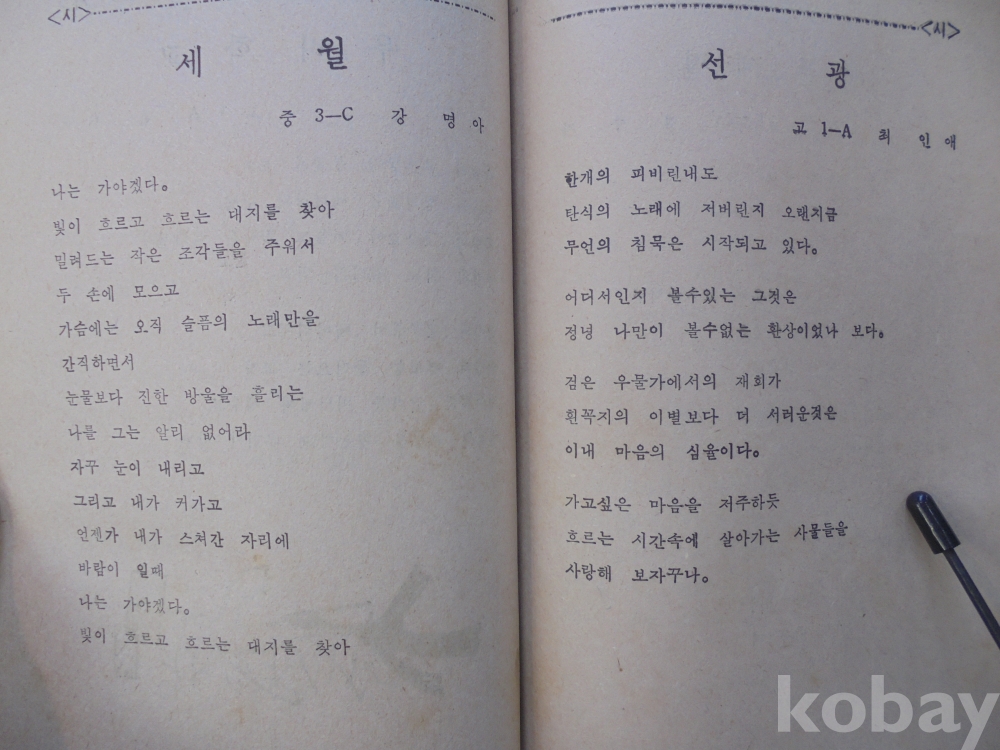 <시>
세 월
중 3—C 강 명 아
나는 가야겠다。
빛이 흐르고 흐르는 대지를 찾아
밀려드는 작은 조각들을 주워서
두 손에 모으고
가슴에는 오직 슬픔의 노래만을
간직하면서
눈물보다 진한 방울을 흘리는
나를 그는 알리 없어라
자꾸 눈이 내리고
그리고 내가 커가고
언젠가 내가 스쳐간 자리에
바람이 일때
나는 가야겠다。
빛이 흐르고 흐르는 대지를 찾아
<시>
선 광
고 1—A 최 인 애
한개의 피비린내도
탄식의 노래에 저버린지 오랜지금
무언의 침묵은 시작되고 있다。
어디서인지 볼수있는 그것은
정녕 나만이 볼수없는 환상이었나 보다。
검은 우물가에서의 재회가
흰꼭지의 이별보다 더 서러운것은
이내 마음의 심율이다。
가고싶은 마음을 저주하듯
흐르는 시간속에 살아가는 사물들을
사랑해 보자꾸나。
kobay